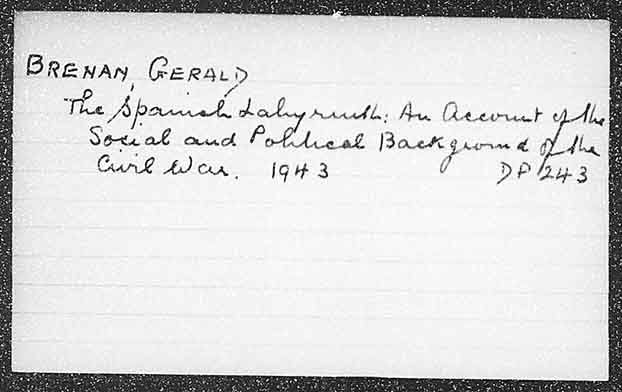 BRENAN, GERALD
The Spanish Labyrinth: An Account of the
Social and Political Background of the
Civil War. 1943 DP 243